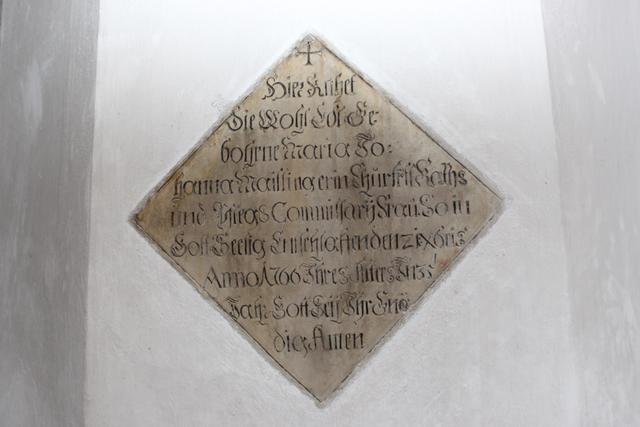 Hier Ruhet
Die Wohl Edl Ge-
bohrne Maria Jo=
hanna Maillingerin Churfrtl Raths
und Kriegs Commissary Frau. So in
Gott Seelig Entschlaffen den
Anno 1766 Ihres Alters Im
Jahr Gott Seij Ihr Gnä
dig Amen